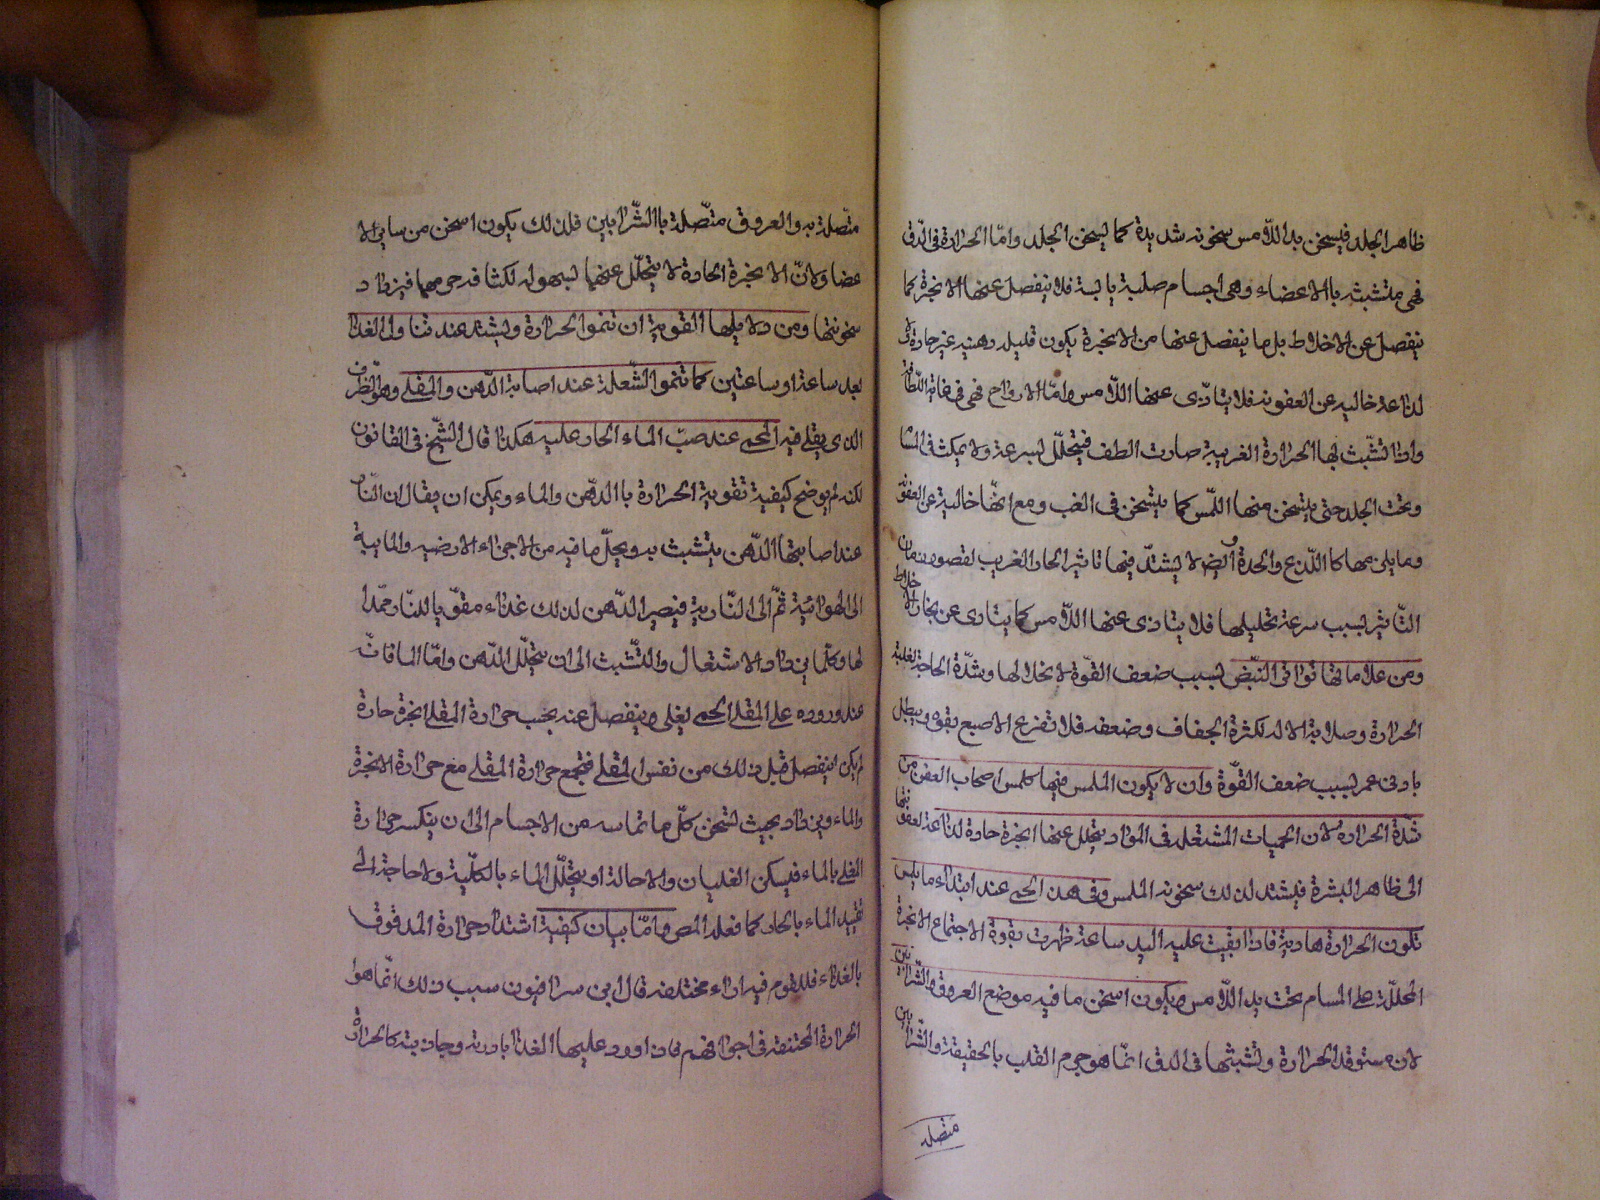 ظاهر الجلد فيسخن بد اللامس سخونه شديدة كما يسخن الجلد واما الحرارة فى الدق
فهى متشبثه باالاعضاء وهى اجسام صلبة يابسة فلا ينفصل عنها الابخرة كما
ينفصل عن الاخلاط بل ما ينفصل عنها من الابخرة يكون قليله وهينه غير حادة ولا
لذاعة خاليه عن العفونه فلا يتاذى عنها اللامس واما الارواح فهى فى غاية اللطافة
واذا تشبث بها الحرارة الغريبة صارت الطف فيتحلل بسرعة ولا يمكث فى المسا
وتحت الجلد حتى يتسخن منها اللمس كما يتسخن فى الغب ومع انها خالية عن العفونة
وما يلزمها كا اللذع والحدة ايضا لا يشتد فيها تاثير الحار الغريب لقصور زمان
التاثير بسبب سرعة تحليلها فلا يتاذى عنها اللامس كما يتاذى عن بخار الاخلاط
ومن علاماتها تواتر النبض بسبب ضعف القوة لانحلالها وشدة الحاجة لغلبة
الحرارة وصلابة الاله لكثرة الجفاف وضعفه فلا تقرع الاصبع بقوه ويبطل
بادنى غمر بسبب ضعف القوة وان لا يكون الملمس فيها كلمس اصحاب العفن من
شدة الحراره لان الحميات المشتعله فى المواد يتحلل عنها ابخرة حادة لذاعة لعفونتها
الى ظاهر البشرة فيشتد لذلك سخونه الملمس وفى هذه الحمى عند ابتداء ما يلمس
تكون الحرارة هادية فاذا بقيت عليه اليد ساعة ظهرت بقوة لاجتماع الابخرة
المحللة على المسام تحت يد اللامس ويكون اسخن ما فيه موضع العروق والشرايين
لان مستوقد الحرارة وتشبثها فى الدق انما هو جرم القلب بالحقيقة والشرايين
متصله
متصلة به والعروق متصلة باالشرايين فلذلك يكون اسخن من ساير الا
عضا ولان الابخرة الحادة لا يتحلل عنها بسهوله لكثافه جرمها فيزداد
سخونتها ومن دلايلها القوية ان تنموا الحرارة ويشتد عند تناول الغذا
بعد ساعة او ساعتين كما تنموا الشعلة عند اصابة الدهن والمقلى وهو الظرف
الذى يقلى فيه اللحم عند صب الماء الحار عليه هكذا قال الشيخ فى القانون
لكنه لم يوضح كيفية تقوية الحرارة باالدهن والماء ويمكن ان يقال ان النار
عند اصابتها الدهن يتشبث به ويحلل ما فيه من الاجزاء الارضيه والمايية
الى الهوائية ثم الى النارية فيصير الدهن لذلك غذاء مقويا للنار ممدا
لها وكلما يزداد الاشتعال والتشبث الى ان يتحلل الدهن واما الماء فانه
عند وروده على المقلى الحمى يغلى وينفصل عنه بحسب حرارة المقلى ابخرة حارة
لم يكن ينفصل قبل ذلك من نفس المقلى فتجمع حرارة المقلى مع حرارة الابخرة
والماء ويزداد بحيث تسخن كل ما تماسه من الاجسام الى ان ينكسر حرارة
المقلى بالماء فيسكن الغليان والاحالة او يتحلل الماء بالكلية ولا حاجة الى
تقييد الماء بالحار كما فعله المص واما بيان كيفية اشتداد حرارة المدقوق
بالغذاء فللقوم فيه اراء مختلفه قال ابن سرافيون سبب ذلك انما هو
الحرارة المختنقه فى اجزائهم فاذا ورد عليها الغذا ابادرته وجاذبته كالحرارة